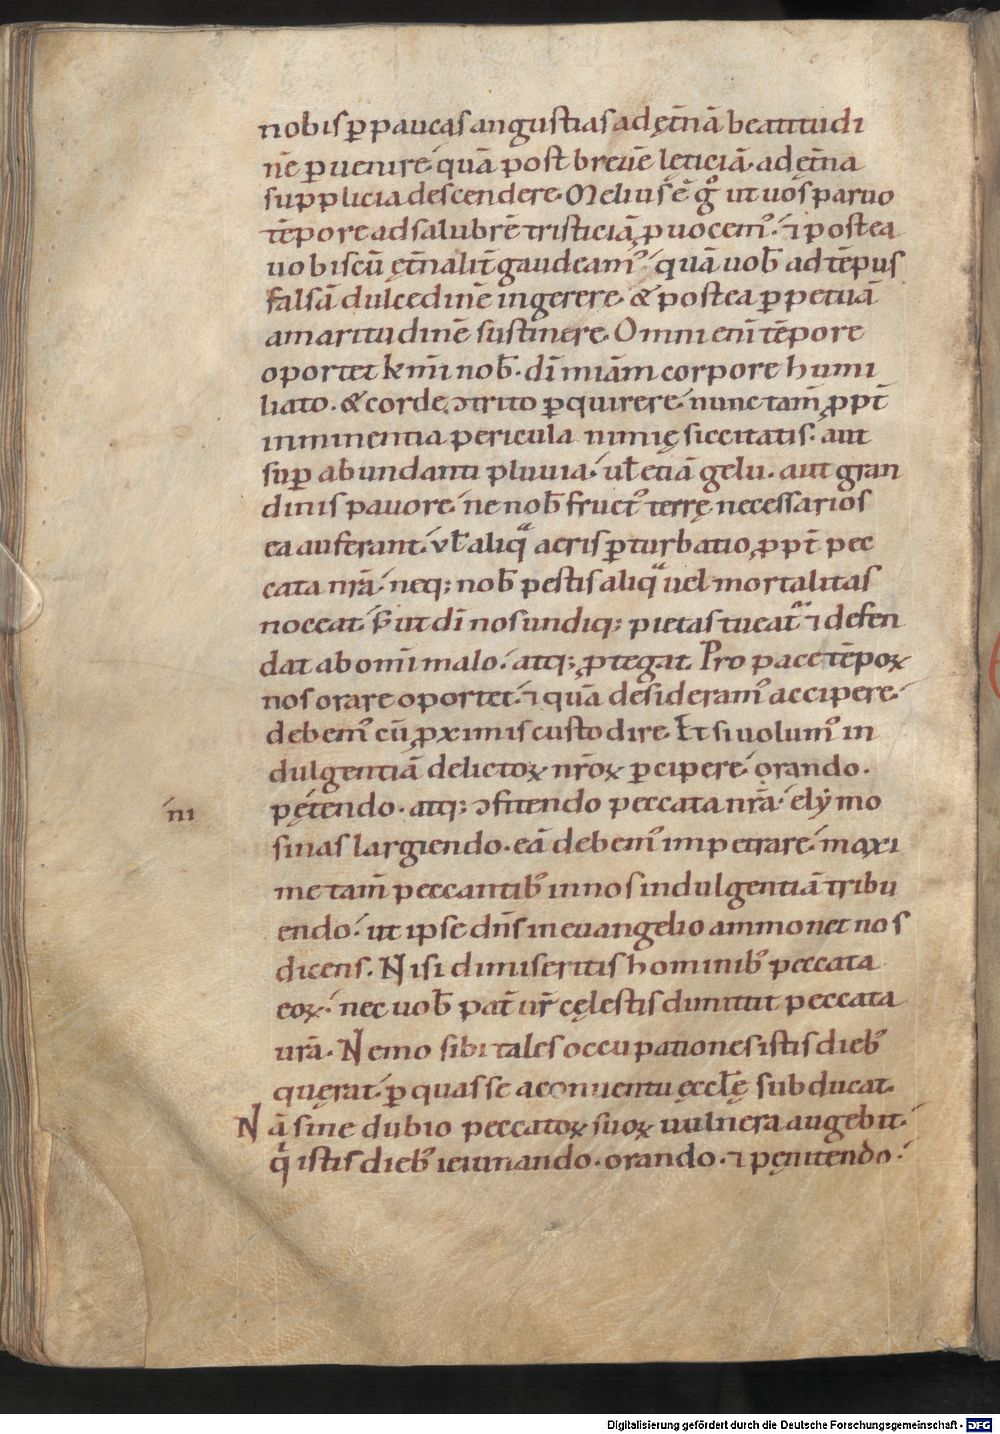 nobis ꝑ paucas angustias ad ęt̄nā beatitudi
nē ꝑuenire· quā post breuē lęticiā· ad ęt̄na
supplicia descendere· Melius ē g̊ ut uos paruo
tēpore ad salubrē tristiciā ꝓuocem᾽· ⁊ postea
uobiscū ęt̄nalit̄ gaudeam᾽· quā uob̄ ad tēpus
falsā dulcedinē ingerere· & postea ꝑpetuā
amaritudinē sustinere· Omni eni tēpore
oportet kmī nob̄· dī miām corpore humi
liato· & corde ↄtrito ꝑquirere· nunc tam̄ ꝓpt̄
inminentia pericula nimię siccitatis· aut
suꝑ abundanti pluuia· ul̄ etiā gelu· aut gran
dinis pauore· ne nob̄ fruct᾽ terrę necessarios
ea auferant· ul̄ aliqͣ aeris ꝑturbatio ꝓpt̄ pec
cata nr̄a· neq; nob̄ pestis aliqͣ uel mortalitas
noceat· s̄ ut dī nos undiq; pietas tueat᷑ ⁊ defen
dat ab omī malo· atq; ꝓtegat. Pro pace tēpoꝝ
nos orare oportet· ⁊ quā desideram᾽ accipere·
debem᾽ cū ꝓximis custodire· Et si uolum᾽ in
dulgentiā delictoꝝ nr̄oꝝ ꝑcipere· orando·
pętendo· atq; ↄfitendo peccata nr̄a· elymo
iii
sinas largiendo· eā debem᾽ impetrare· maxi
me tam̄ peccantib᾽ in nos indulgentiā tribu
endo· ut ipse dn̄s in euangelio ammonet nos
dicens· Nisi dimiseritis hominib᾽ peccata
eoꝝ· nec uob̄ pat̄ ur̄ cęlestis dimittit peccata
ur̄a· Nemo sibi tales occupationes istis dieb᾽
quęrat· ꝑ quas se a conuentu ęccl̄ę subducat·
Nā sine dubio peccatoꝝ suoꝝ uulnera augebit·
q̄ istis dieb᾽ ieiunando· orando· ⁊ pęnitendo·
Digitalisierung gefördert durch die Deutsche Forschungsgemeinschaft - DFG